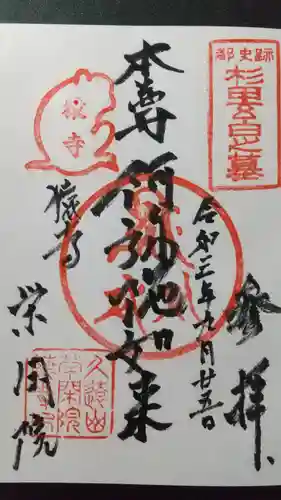 都史跡
杉田玄白之墓
参拝
令和三年九月廿五日
本尊阿弥陀如来
猿寺
猿寺
栄閑院
久遠山
栄閑院